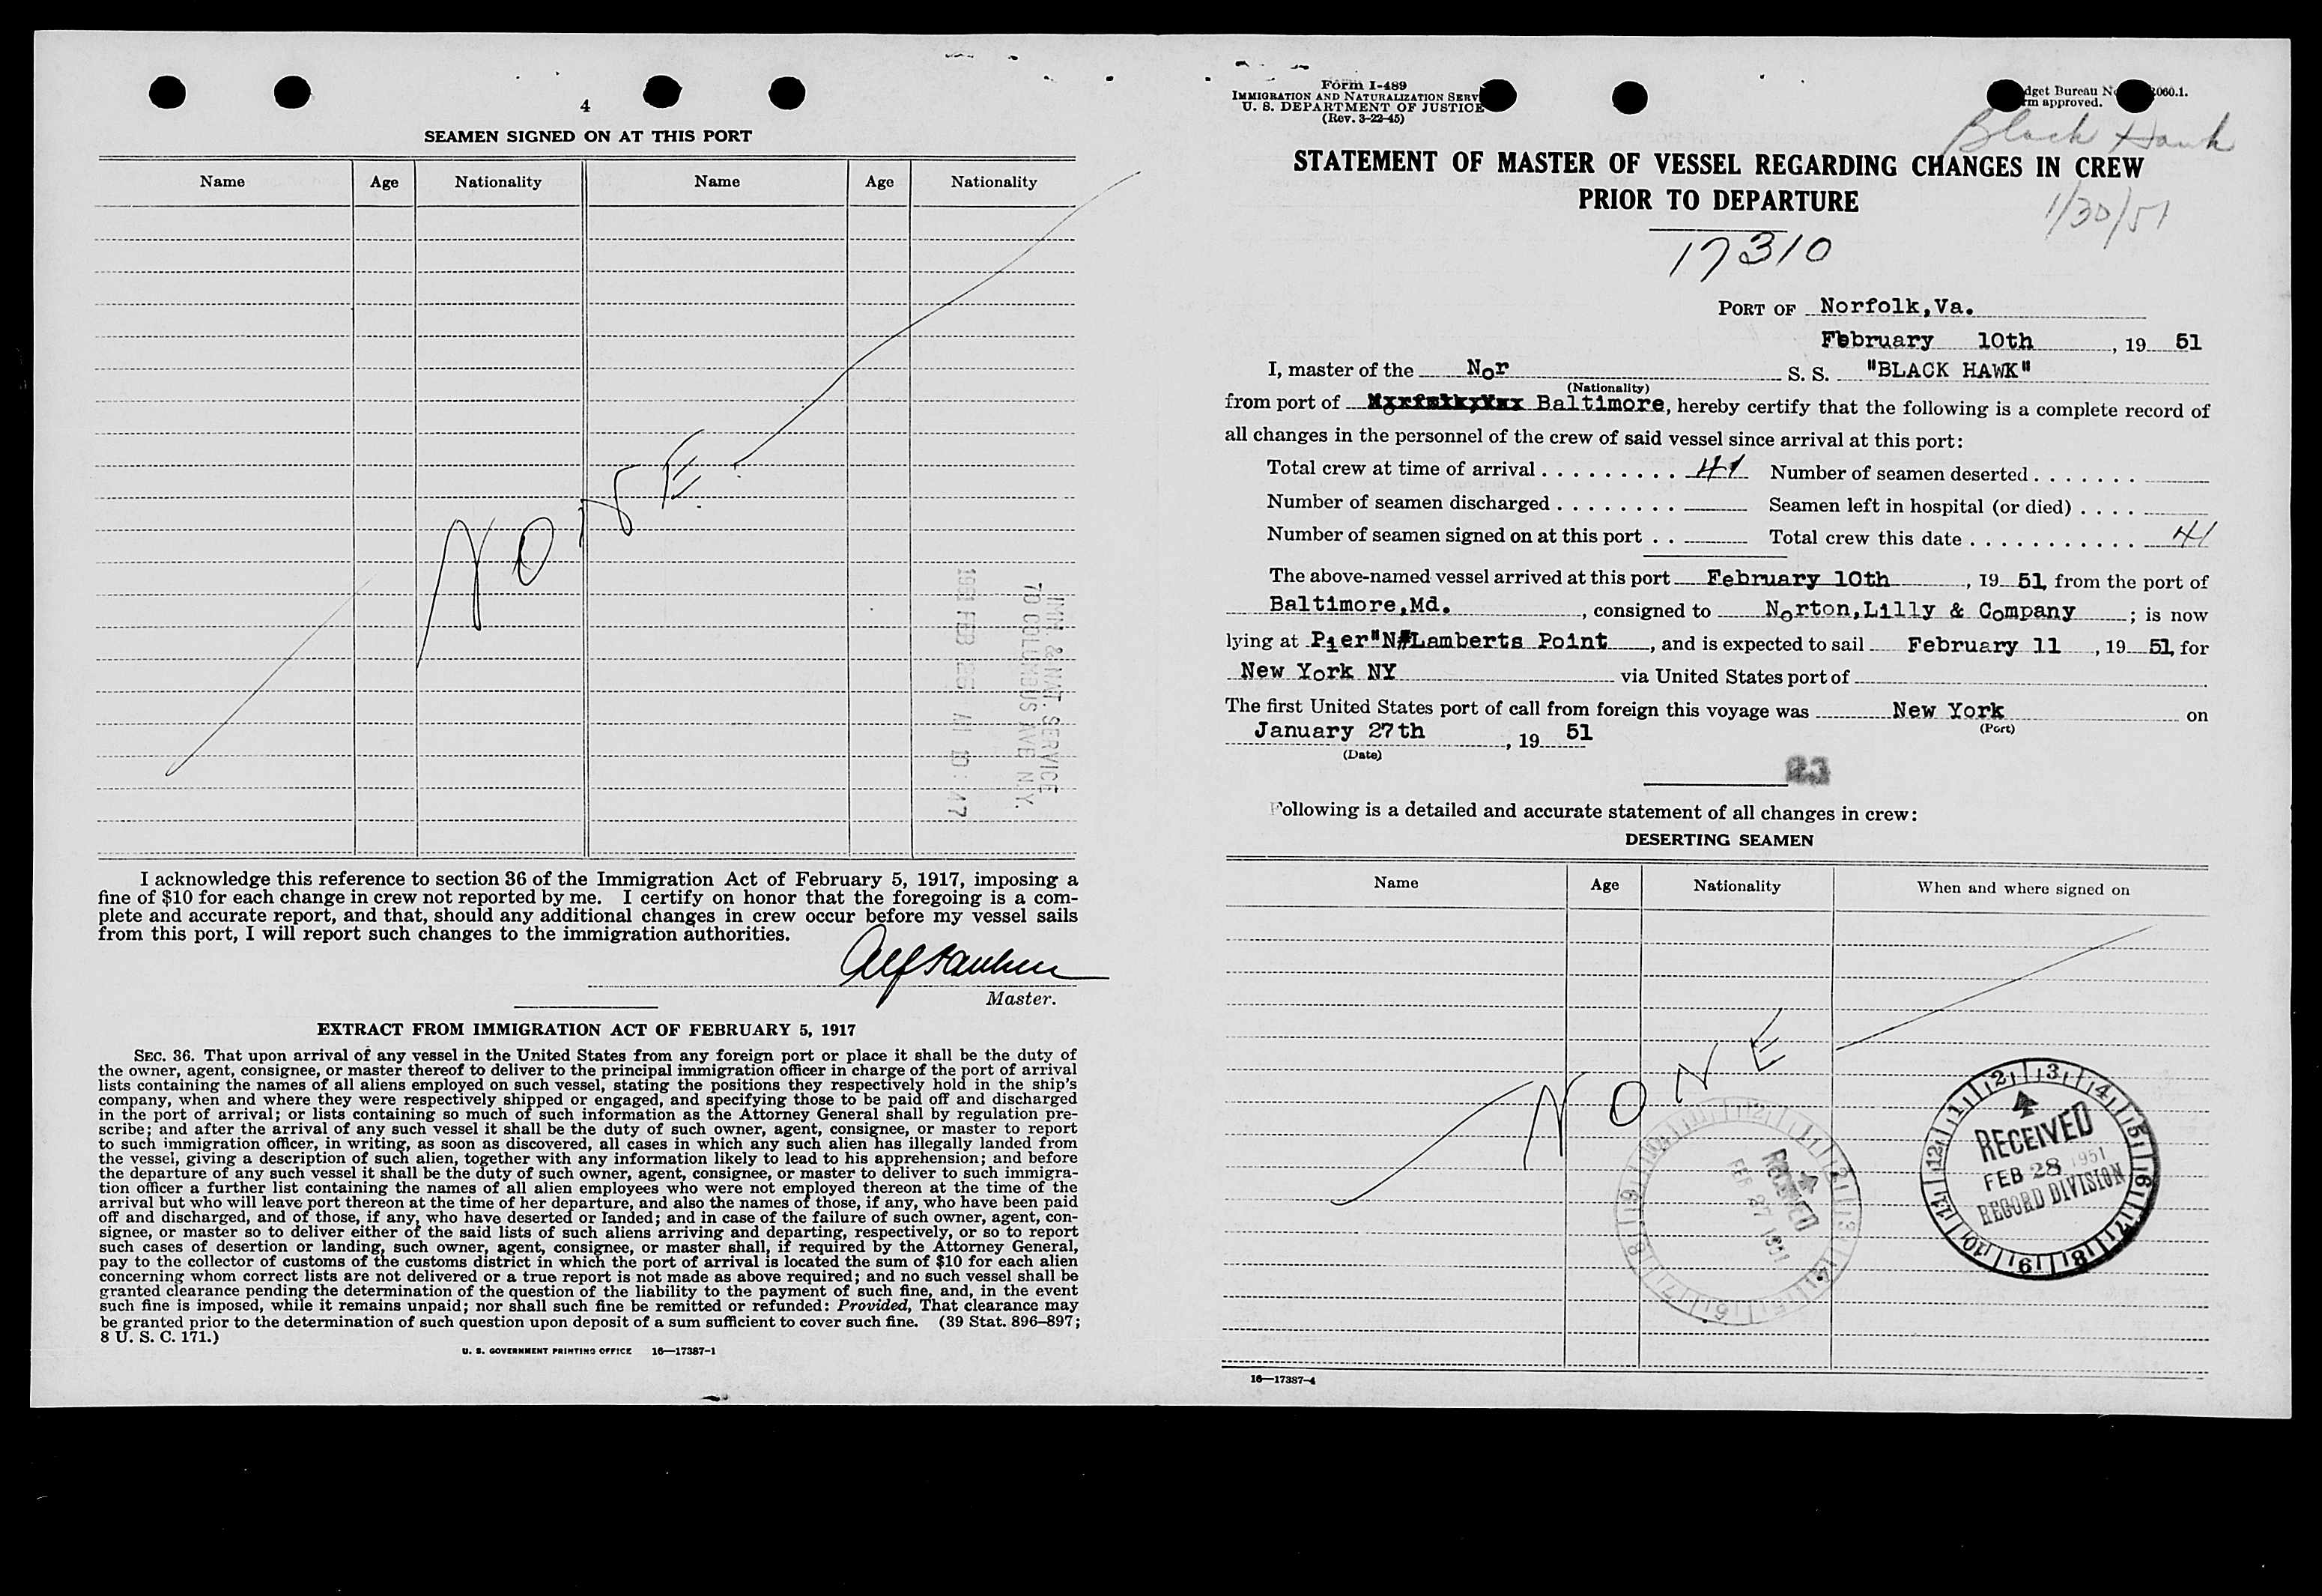 4
SEAMEN SIGNED ON AT THIS PORT
Name Age Nationality Name Age Nationality
NONE
IMM. & NAT. SERVICE
70 COLUMBUS AVE N.Y.
1951 FEB 26 AM 10:47
I acknowledge this reference to section 36 of the Immigration Act of February 5, 1917, imposing a
fine of $10 for each change in crew not reported by me. I certify on honor that the foregoing is a com-
plete and accurate report, and that, should any additional changes in crew occur before my vessel sails
from this port, I will report such changes to the immigration authorities.
Master.
EXTRACT FROM IMMIGRATION ACT OF FEBRUARY 5, 1917
SEC. 36. That upon arrival of any vessel in the United States from any foreign port or place it shall be the duty of
the owner, agent, consignee, or master thereof to deliver to the principal immigration officer in charge of the port of arrival
lists containing the names of all aliens employed on such vessel, stating the positions they respectively hold in the ship's
company, when and where they were respectively shipped or engaged, and specifying those to be paid off and discharged
in the port of arrival; or lists containing so much of such information as the Attorney General shall by regulation pre-
scribe; and after the arrival of any such vessel it shall be the duty of such owner, agent, consignee, or master to report
to such immigration officer, in writing, as soon as discovered, all cases in which any such alien has illegally landed from
the vessel, giving a description of such alien, together with any information likely to lead to his apprehension; and before
the departure of any such vessel it shall be the duty of such owner, agent, consignee, or master to deliver to such immigra-
tion officer a further list containing the names of all alien employees who were not employed thereon at the time of the
arrival but who will leave port thereon at the time of her departure, and also the names of those, if any, who have been paid
off and discharged, and of those, if any, who have deserted or landed; and in case of the failure of such owner, agent, con-
signee, or master so to deliver either of the said lists of such aliens arriving and departing, respectively, or so to report
such cases of desertion or landing, such owner, agent, consignee, or master shall, if required by the Attorney General,
pay to the collector of customs of the customs district in which the port of arrival is located the sum of $10 for each alien
concerning whom correct lists are not delivered or a true report is not made as above required; and no such vessel shall be
granted clearance pending the determination of the question of the liability to the payment of such fine, and, in the event
such fine is imposed, while it remains unpaid; nor shall such fine be remitted or refunded: Provided, That clearance may
be granted prior to the determination of such question upon deposit of a sum sufficient to cover such fine. (39 Stat. 896–897;
8 U. S. C. 171.)
U. S. GOVERNMENT PRINTING OFFICE 16—17387-1
Form I-489
IMMIGRATION AND NATURALIZATION SERV
U. S. DEPARTMENT OF JUSTICE
(Rev. 3-22-45)
dget Bureau No 060.1.
rm approved.
Black Hawk
STATEMENT OF MASTER OF VESSEL REGARDING CHANGES IN CREW
PRIOR TO DEPARTURE
1/30/51
17310
PORT OF Norfolk,Va.
February 10th, 19 51
I, master of the Nor S. S. "BLACK HAWK"
(Nationality)
from port of Baltimore, hereby certify that the following is a complete record of
all changes in the personnel of the crew of said vessel since arrival at this port:
Total crew at time of arrival 41 Number of seamen deserted
Number of seamen discharged Seamen left in hospital (or died)
Number of seamen signed on at this port Total crew this date 41
The above-named vessel arrived at this port February 10th, 19 51 from the port of
Baltimore,Md., consigned to Norton,Lilly & Company; is now
lying at Pier"N"Lamberts Point, and is expected to sail February 11, 19 51, for
New York NY via United States port of
The first United States port of call from foreign this voyage was New York on
(Port)
January 27th, 19 51
(Date)
Following is a detailed and accurate statement of all changes in crew:
DESERTING SEAMEN
Name Age Nationality When and where signed on
NONE
RECEIVED
FEB 27 1951
RECEIVED
FEB 28 1951
RECORD DIVISION
16—17387-4